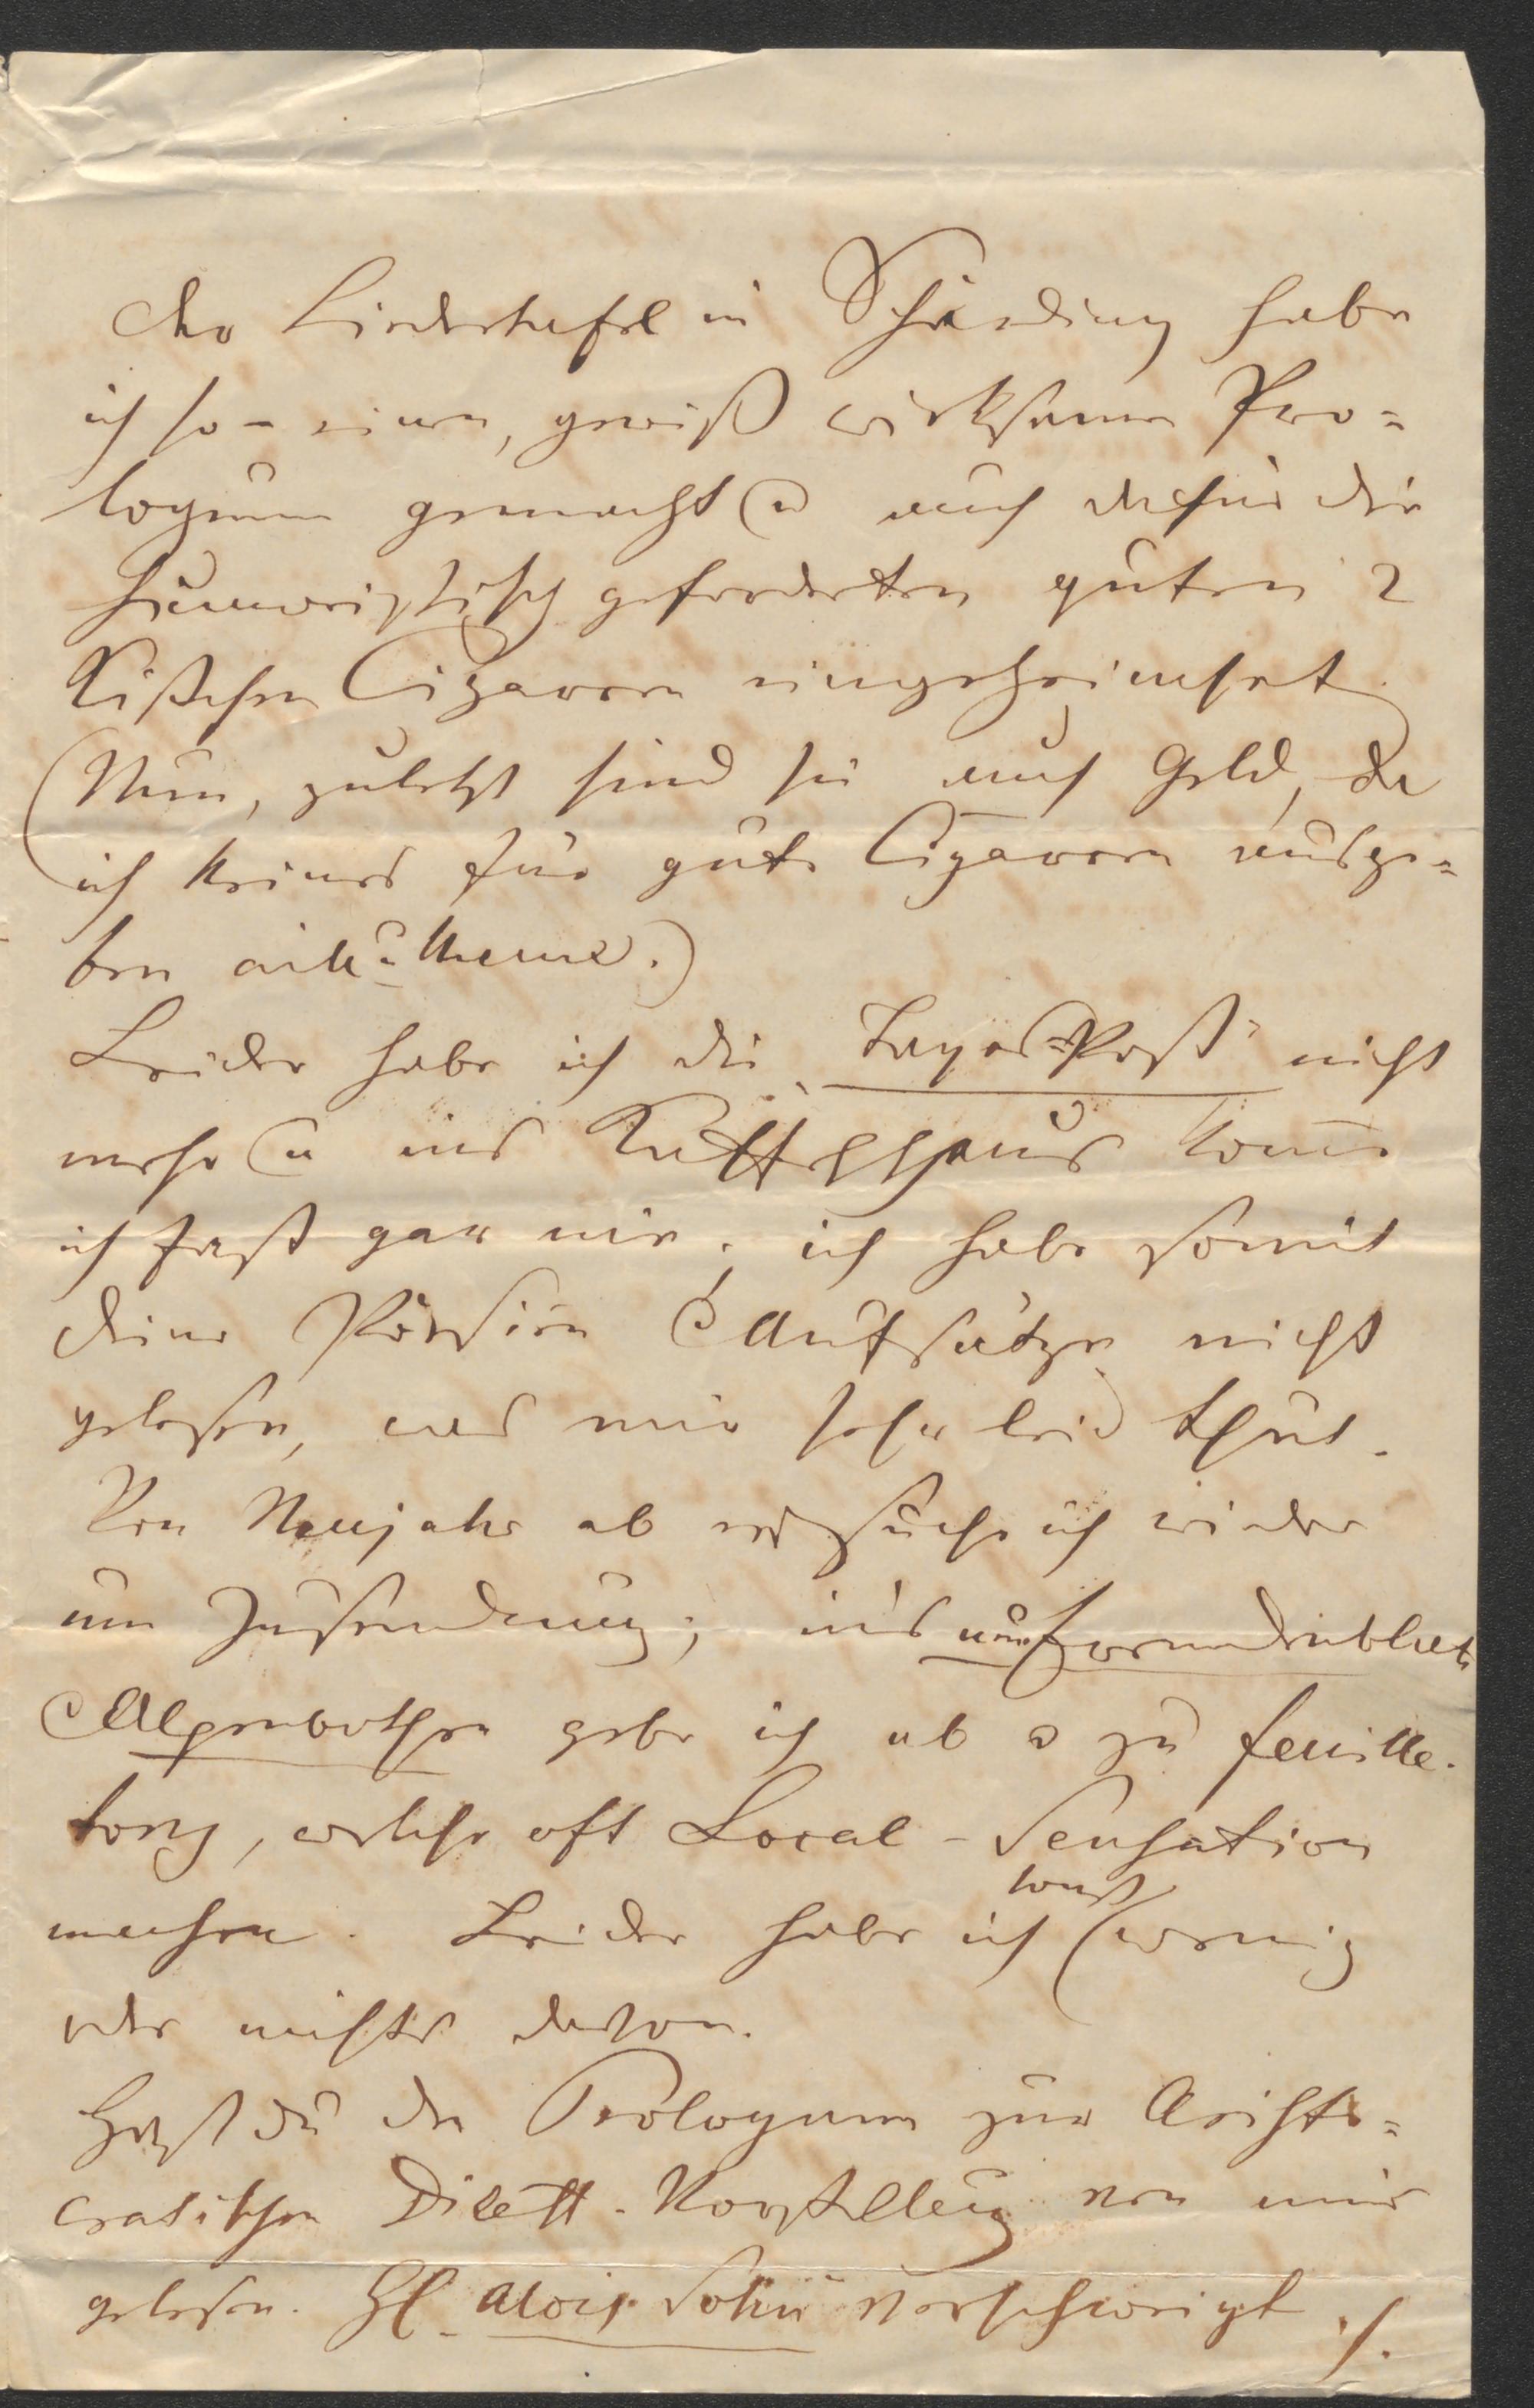 der Liedertafel in Schärding habe
ich so einen, gewiß wirksamen Pro=
logum gemacht u auch dafür die
humoristisch geforderten guten 2
Kistchen Cigarren eingeheimset.
(Nun, zuletzt sind sie auch Geld, da
ich keines für gute Cigarren ausge=
ben
Leider habe ich die „Tages-Post" nicht
mehr u ins Kaffehhaus komme
ich fast gar nie; ich habe somit
deine Poesien & Aufsätze nicht
gelesen, was mir sehr leid thut.
Von Neujahr ab ersuche ich wieder
um Zusendung; in's
Alpenbothen gebe ich ab u zu feuille-
tons, welche oft Local-Sensation
machen. Leider habe ich sonst wenig
oder nichts davon.
Hast du den Prologum zur Aristo=
cratischen Dilett. Vorstellung von mir
gelesen. H. Alois Sohn verschweigt ./.